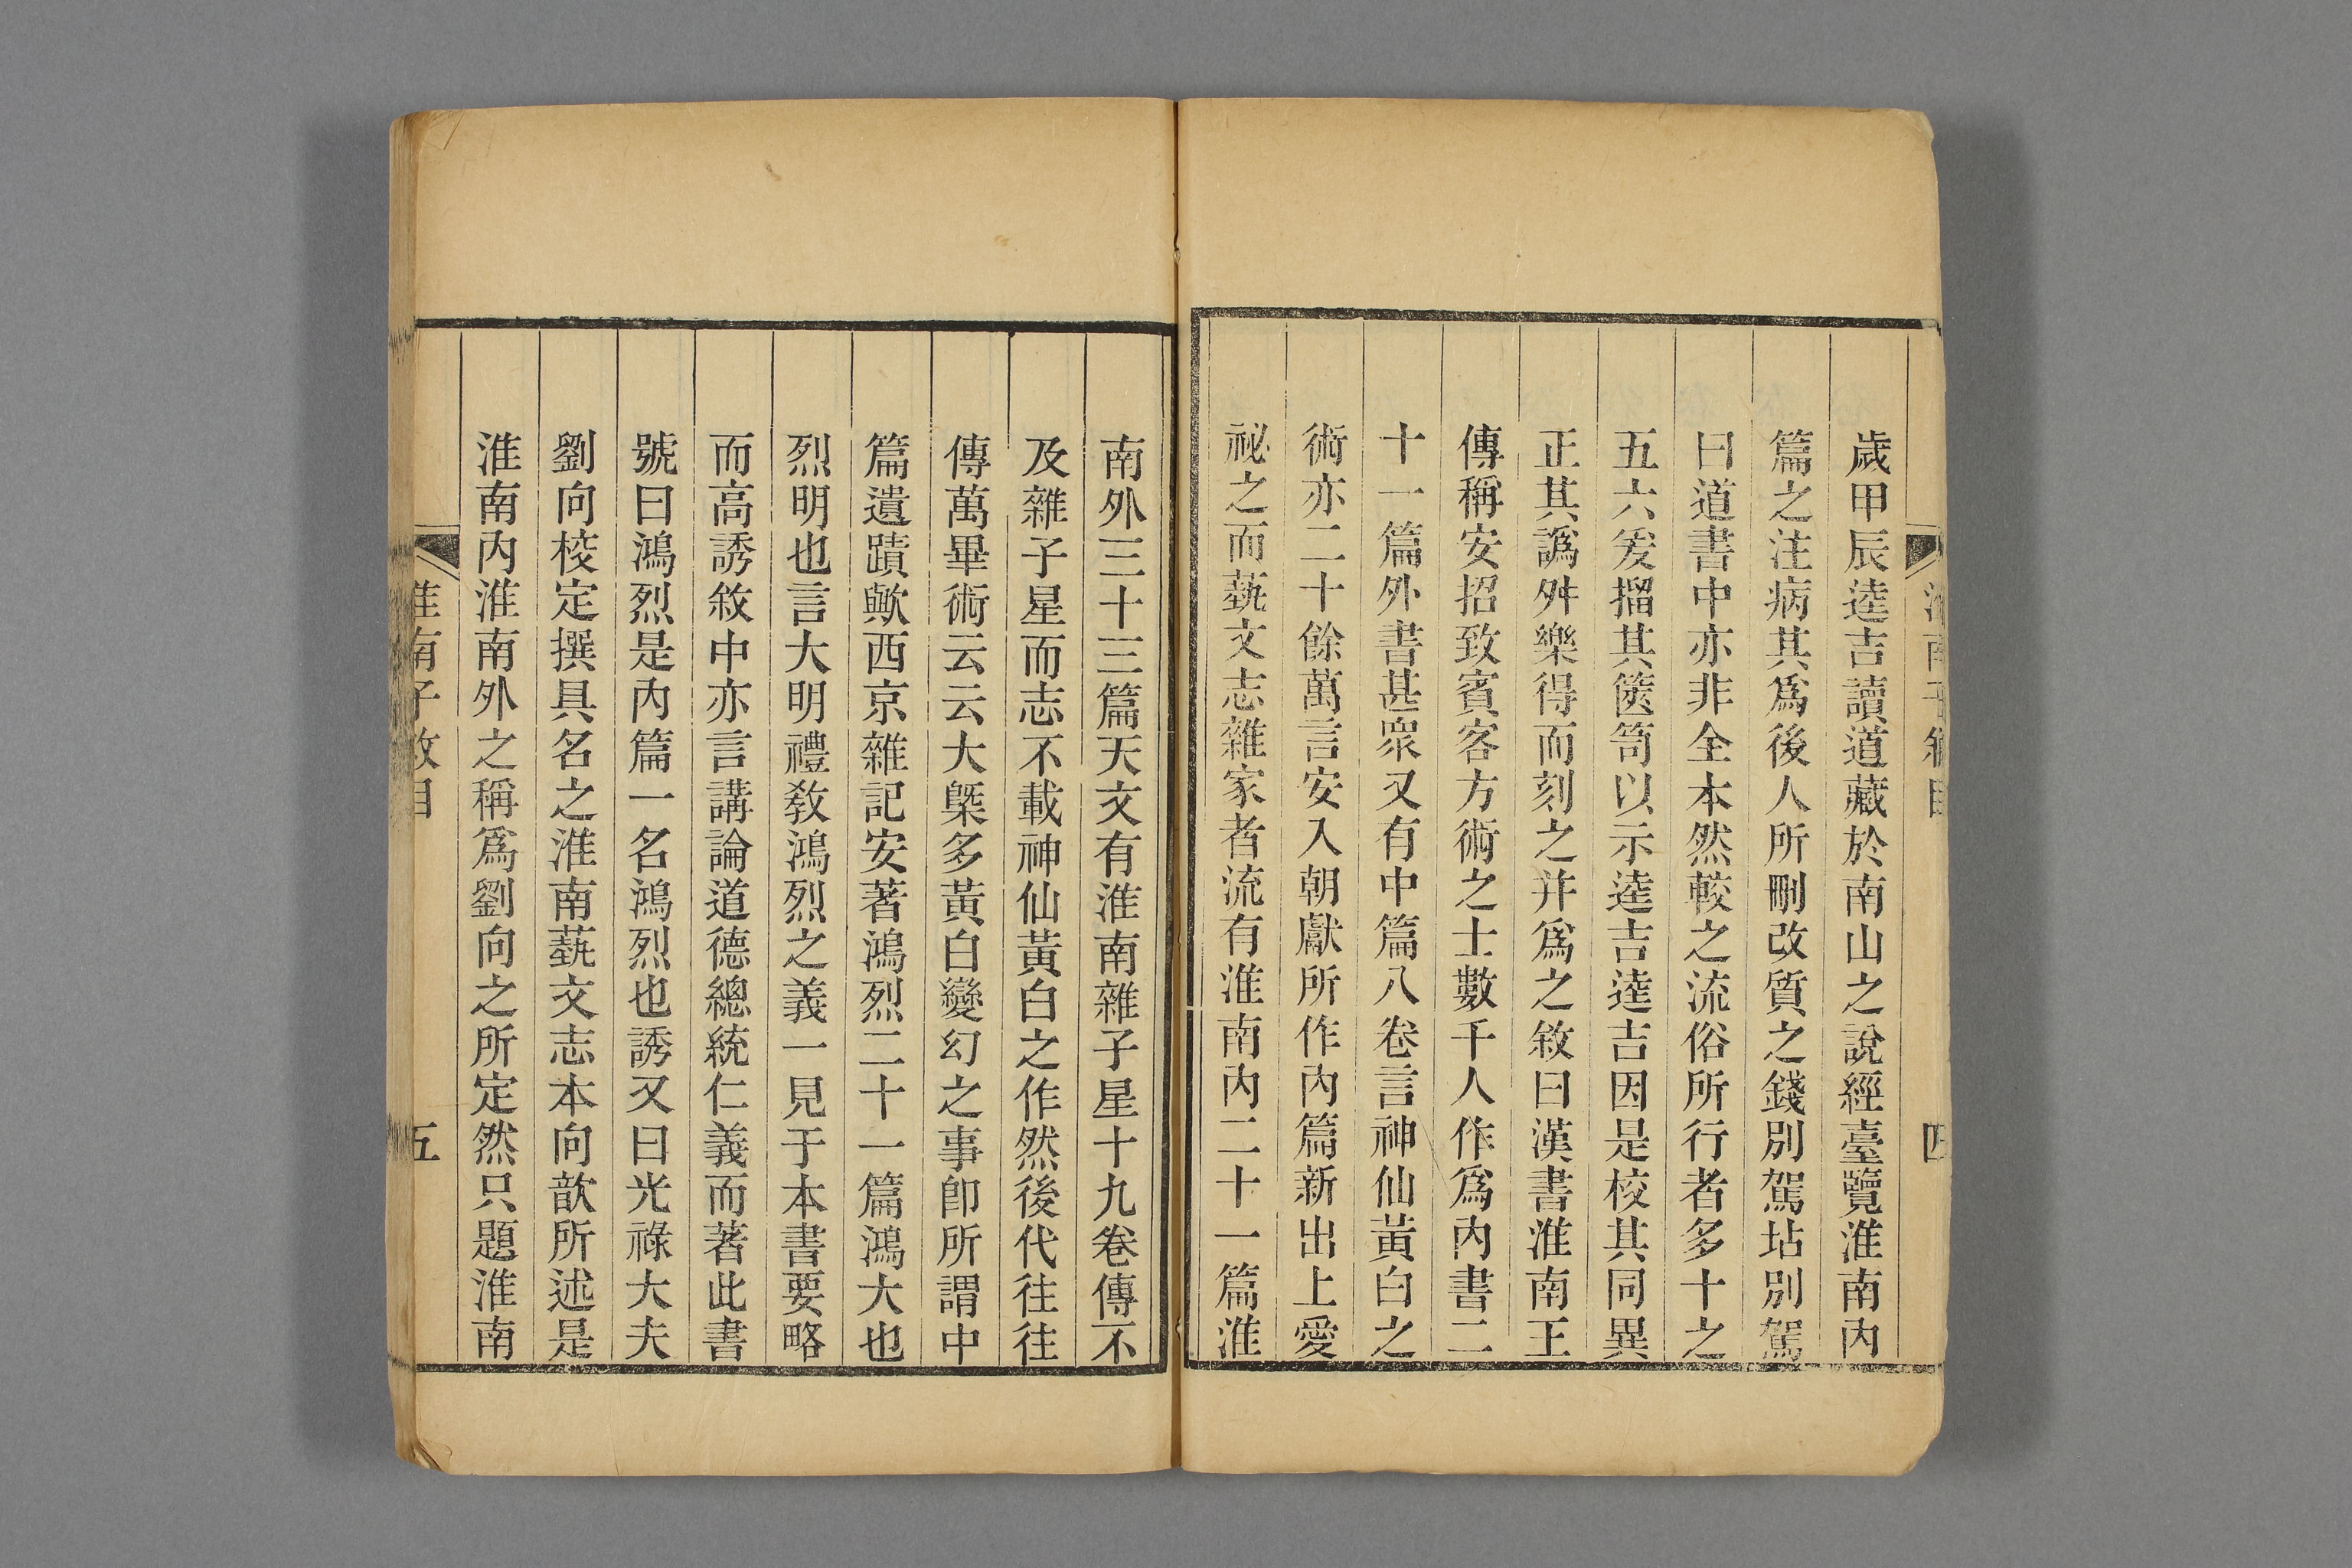 歲甲辰逵吉讀道藏於南山之說經臺覽淮南內
篇之注病其爲後人所刪改質之錢別駕坫別駕
曰道書中亦非全本然較之流俗所行者多十之
五六爰㨨其篋笥以示逵吉逵吉因是校其同異
正其譌舛樂得而刻之并爲之敘曰漢書淮南王
傳稱安招致賓客方術之士數千人作爲內書二
十一篇外書甚眾又有中篇八卷言神仙黃白之
術亦二十餘萬言安入朝獻所作內篇新出上愛
祕之而蓺文志雜家者流有淮南內二十一篇淮
南外三十三篇天文有淮南雜子星十九卷傳不
及雜子星而志不載神仙黃白之作然後代往往
傳萬畢術云云大槩多黃白變幻之事卽所謂中
篇遺蹟歟西京雜記安著鴻烈二十一篇鴻大也
烈明也言大明禮敎鴻烈之義一見于本書要略
而高誘敘中亦言講論道德總統仁義而著此書
號曰鴻烈是內篇一名鴻烈也誘又曰光祿大夫
劉向校定撰具名之淮南蓺文志本向歆所述是
淮南內淮南外之稱爲劉向之所定然只題淮南
淮南子敘目 五